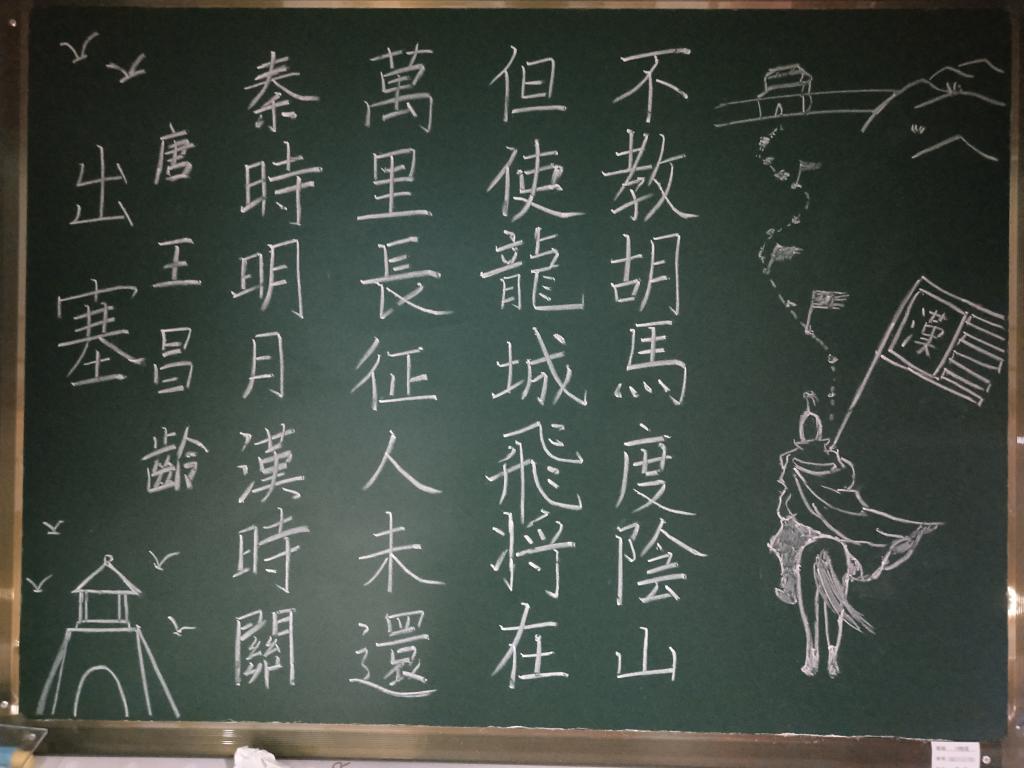 出塞
唐王昌齡
秦時明月漢時關
萬里長征人未還
但使龍城飛將在
不教胡馬度陰山
漢